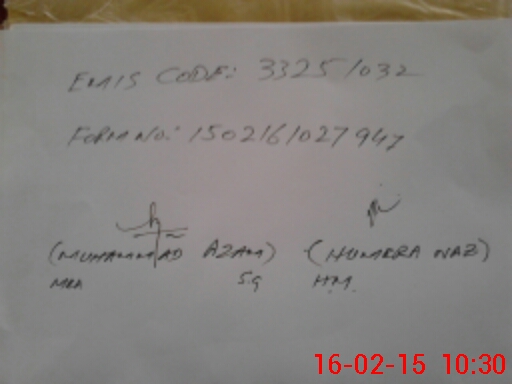 EMIS CODE: 33251032
FORM NO: 1502161027947
(MUHAMMAD AZAM) (HUMERA NAZ)
MEA S.G HM.
16-02-15 10:30